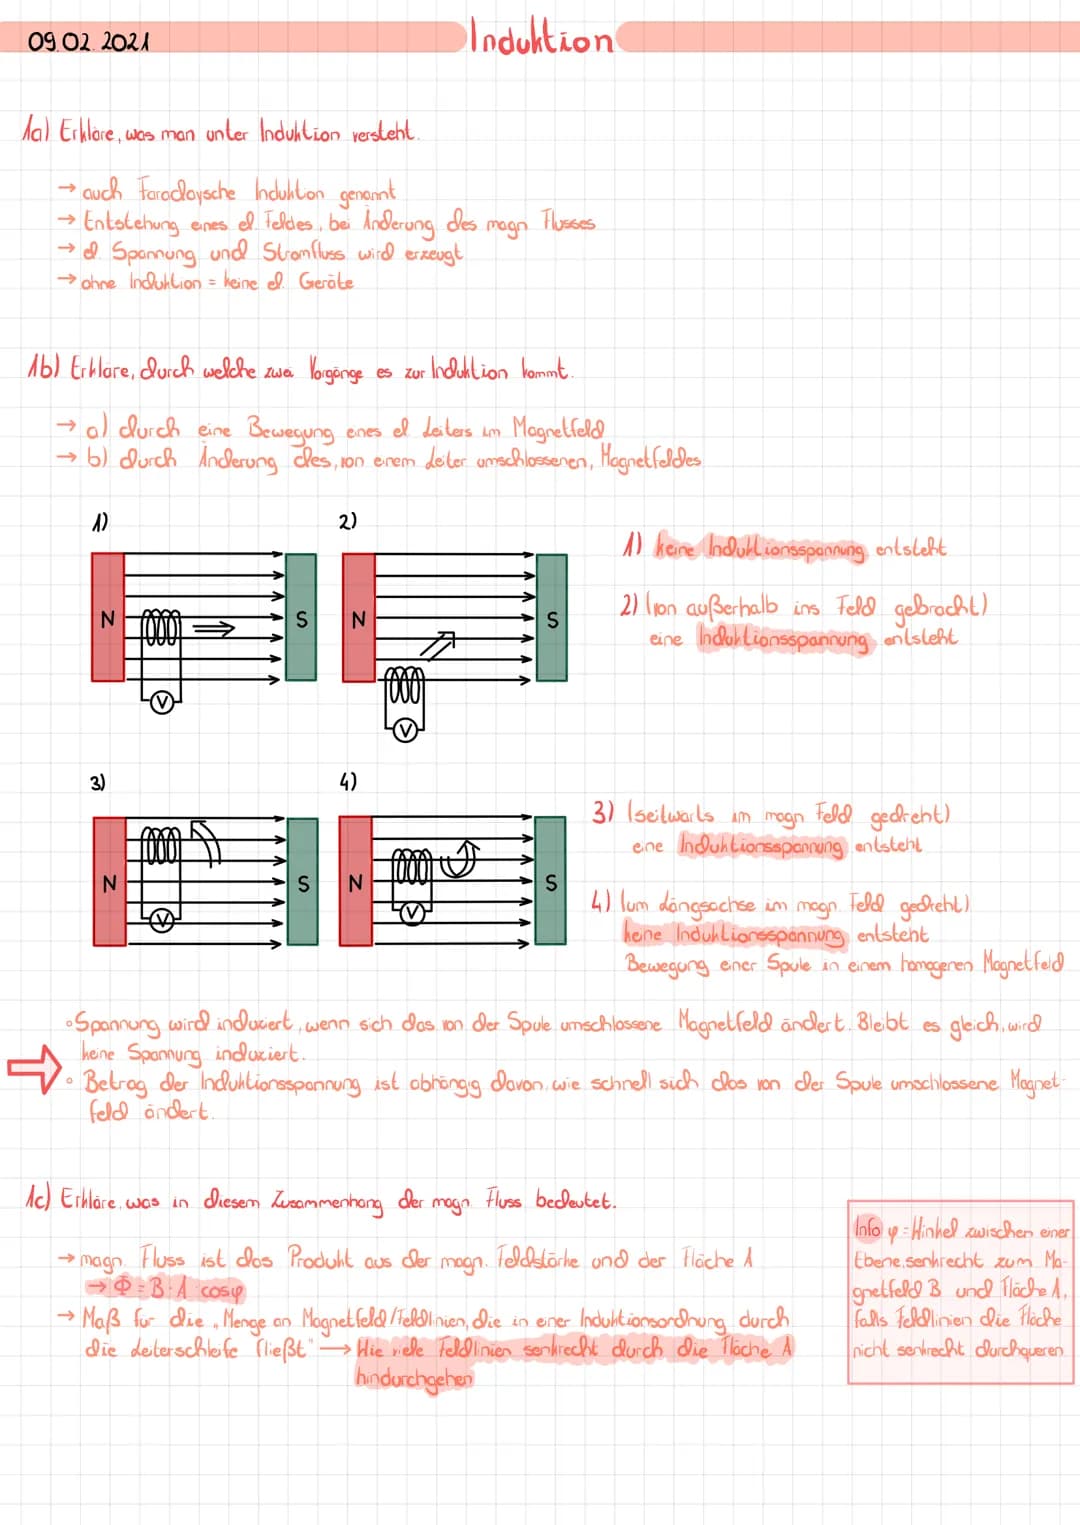 09.02.2021
Induktion
1a) Erkläre, was man unter Induktion versteht.
→ auch Faradaysche Induktion genannt
→ Entstehung eines el. Feldes, bei Änderung des magn Flusses
→ el. Spannung und Stromfluss wird erzeugt
→ ohne Induktion = keine el. Geräte
1b) Erkläre, durch welche zwei Vorgänge es zur Induktion kommt.
→ a) durch eine Bewegung eines el Leiters im Magnetfeld
→ b) durch Änderung des, von einem Leiter umschlossenen, Magnetfeldes
1)
N
S
V
2)
N
S
V
1) keine Induktionsspannung entsteht
2) (von außerhalb ins Feld gebracht)
eine Induktionsspannung entsteht
3)
N
S
V
4)
N
S
V
3) (seitwärts im magn Feld gedreht)
eine Induktionsspannung entsteht
4) (um Längsachse im magn. Feld gedreht)
keine Induktionsspannung entsteht
Bewegung einer Spule in einem homogenen Magnetfeld
• Spannung wird induziert, wenn sich das von der Spule umschlossene Magnetfeld ändert. Bleibt es gleich, wird
keine Spannung induziert.
• Betrag der Induktionsspannung ist abhängig davon, wie schnell sich das von der Spule umschlossene Magnet-
feld ändert.
1c) Erkläre, was in diesem Zusammenhang der magn Fluss bedeutet.
→ magn. Fluss ist das Produkt aus der magn. Feldstärke und der Fläche A
→ Φ = B · A · cosφ
→ Maß für die „Menge an Magnetfeld/Feldlinien, die in einer Induktionsordnung durch
die Leiterschleife fließt" → Wie viele Feldlinien senkrecht durch die Fläche A
hindurchgehen
Info φ = Winkel zwischen einer
Ebene, senkrecht zum Ma-
gnetfeld B und Fläche A,
falls Feldlinien die Fläche
nicht senkrecht durchqueren